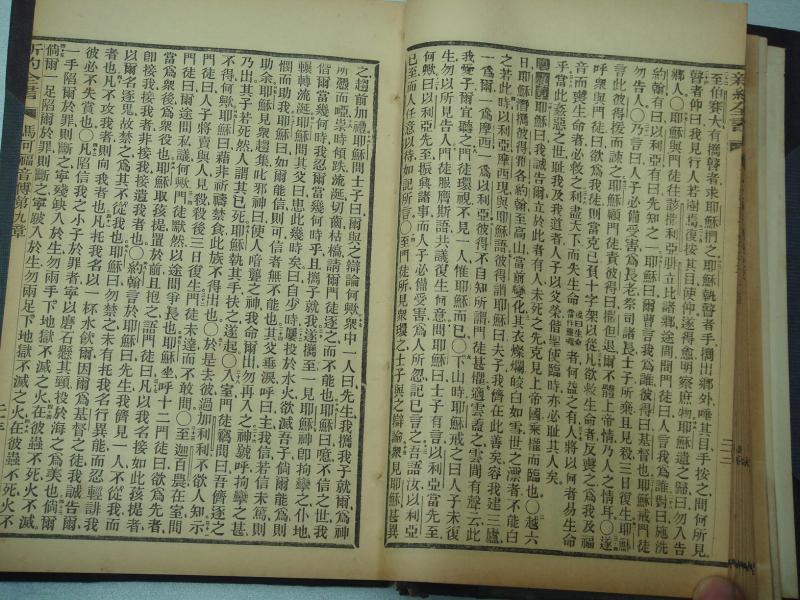 新約全書
至伯賽大有攜瞽者求耶穌捫之耶穌執瞽者手攜出鄉外唾其目手按之問何所見
瞽者仰曰我見行人若樹焉復按其目使仰遂得愈明察庶物耶穌遣之歸曰勿入告
鄉人〇耶穌與門徒往該撒利亞腓立比諸鄉途間問門徒曰人言我爲誰對曰施洗
約翰有曰以利亞有曰先知之一耶穌曰爾曹言我爲誰彼得曰基督也耶穌戒門徒
勿〇乃言人子必備受害爲長老祭司諸長士子所棄且見殺三日復生耶穌
言此彼得援而諫之耶穌顧門徒責彼得曰撒但退爾不體上帝情乃人之情耳〇遂
呼衆與門徒曰欲爲我徒則當克己負十字架以從凡欲救生命者反喪之爲我及福
音而喪生命者必救之利盡天下而失生命者何益之有人將以何者易生命
乎當此姦惡之世耻我及我道者人子以父榮偕聖使臨時亦必耻其人矣
耶穌曰我誠告爾立於此者有人未死之先克見上帝國乘權而臨也〇越六
日耶穌攜彼得雅各約翰至高山當前變化其衣燦爛皎白如雪世之漂者不能白
之若此時以利亞摩西現與耶穌語彼得謂耶穌曰夫子我儕在此善矣容我建三廬
一爲爾一爲摩西一爲以利亞彼得不自知所謂門徒甚懼適雲蓋之雲間有聲云此
我愛子爾宜聽之門徒環視不見一人惟耶穌而已〇下山時耶穌戒之曰人子未復
生勿以所見告人門徒服膺斯語共議復生何意問耶穌曰士子有言以利亞當先至
何歟曰以利亞先至振興諸事而人子必備受害爲人所忽記已言之吾語汝以利亞
已至而人任意以待如記所言〇至門徒所見衆環之士子與之辯論衆見耶穌甚異
之趨前加禮耶穌問士子曰與之辯論何歟衆中一人曰先生我攜我子就爾爲神
所憑而啞祟時傾跌流涎切齒枯槁請爾門徒逐之而不能也耶穌曰噫不信之世我
偕爾當幾何時我忍爾當幾何時乎且攜子就我遂攜至一見耶穌神即拘攣之仆地
輾轉流涎耶穌問其父曰患此幾時矣曰自少時屢投於水火欲滅吾子倘爾能爲
憫而助我耶穌曰如爾能信則可信者無不能也其父垂淚呼曰主我信若信未篤則
助余耶穌見衆趨集此邪神曰使人喑聾之神我命爾出勿再入之神號呼拘攣之甚
乃出其子若死然人謂其已死耶穌執其手扶之遂起〇入室門徒竊問曰吾儕逐之
不得何歟耶穌曰藉非祈禱禁食此族不得出也〇於是去彼過加利利不欲人知示
門徒曰人子將賣與人見殺殺後三日復生門徒未達而不敢問〇至迦百農在室問
門徒曰爾途間私議何歟門徒默然以途間爭長也耶穌坐呼十二門徒曰欲爲先者
當爲衆後爲衆役也耶穌取孩提置於前且抱之語門徒曰凡以我名接如此孩提者
即接我接我者非接我接遣我者也〇約翰言於耶穌曰先生我儕見一人不從我而
以爾名逐鬼故禁之爲其不從我也耶穌曰勿禁之未有托我名行異能而忍輕誹我
者也凡不攻我者則向我者也凡托我名以一杯水飲爾因爾爲基督之徒我誠告爾
彼必不失賞也〇凡陷信我之小子於罪者寧以磨石懸其頸投於海之爲美也倘爾
一手陷爾於罪則斷之寧殘缺入於生勿兩手下地獄不滅之火在彼蟲不死火不滅
倘爾一足陷爾於罪則斷之寧跛入於生勿兩足下地獄不滅之火在彼蟲不死火不
新約全書 馬可福音傳第九章